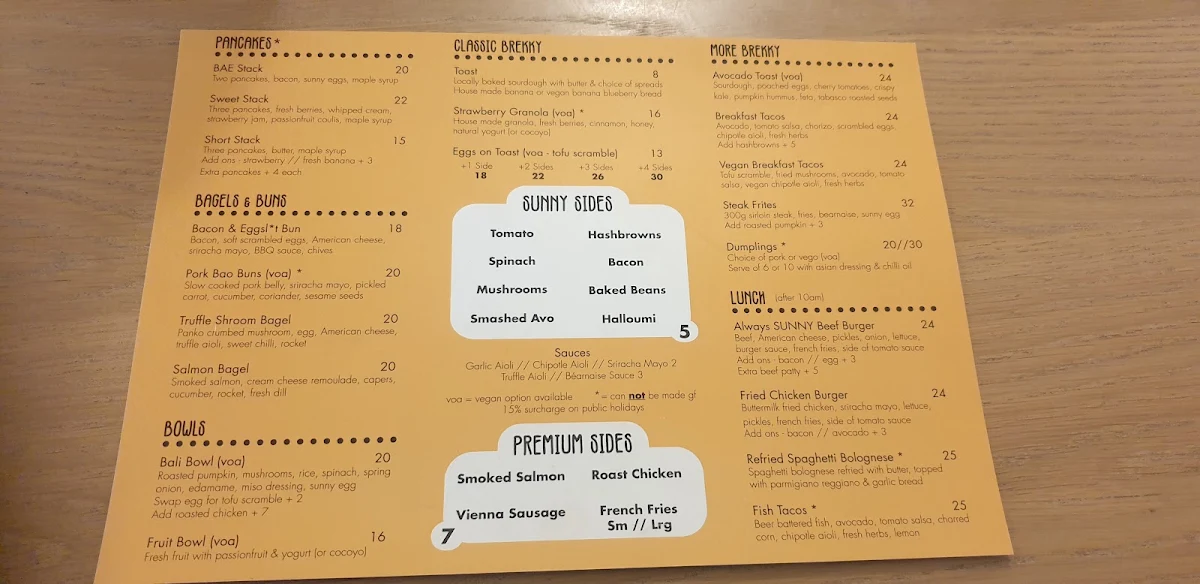 PANCAKES*
BAE Stack 20
Two pancakes, bacon, sunny eggs, maple syrup
Sweet Stack 22
Three pancakes, fresh berries, whipped cream,
strawberry jam, passionfruit coulis, maple syrup
Short Stack 15
Three pancakes, butter, maple syrup
Add ons - strawberry // fresh banana + 3
Extra pancakes + 4 each
BAGELS & BUNS
Bacon & Eggsl*t Bun 18
Bacon, soft scrambled eggs, American cheese,
sriracha mayo, BBQ sauce, chives
Pork Bao Buns (voa) * 20
Slow cooked pork belly, sriracha mayo, pickled
carrot, cucumber, coriander, sesame seeds
Truffle Shroom Bagel 20
Panko crumbed mushroom, egg, American cheese,
truffle aioli, sweet chilli, rocket
Salmon Bagel 20
Smoked salmon, cream cheese remoulade, capers,
cucumber, rocket, fresh dill
BOWLS
Bali Bowl (voa) 20
Roasted pumpkin, mushrooms, rice, spinach, spring
onion, edamame, miso dressing, sunny egg
Swap egg for tofu scramble + 2
Add roasted chicken + 7
Fruit Bowl (voa) 16
Fresh fruit with passionfruit & yogurt (or cocoyo)
CLASSIC BREKKY
Toast 8
Locally baked sourdough with butter & choice of spreads
House made banana or vegan banana blueberry bread
Strawberry Granola (voa) * 16
House made granola, fresh berries, cinnamon, honey,
natural yogurt (or cocoyo)
Eggs on Toast (voa - tofu scramble) 13
+1 Side +2 Sides +3 Sides +4 Sides
18 22 26 30
SUNNY SIDES
Tomato Hashbrowns
Spinach Bacon
Mushrooms Baked Beans
Smashed Avo Halloumi
5
Sauces
Garlic Aioli // Chipotle Aioli // Sriracha Mayo 2
Truffle Aioli // Béarnaise Sauce 3
voa = vegan option available * = can not be made gf
15% surcharge on public holidays
PREMIUM SIDES
Smoked Salmon Roast Chicken
Vienna Sausage French Fries
Sm // Lrg
7
MORE BREKKY
Avocado Toast (voa) 24
Sourdough, poached eggs, cherry tomatoes, crispy
kale, pumpkin hummus, feta, tabasco roasted seeds
Breakfast Tacos 24
Avocado, tomato salsa, chorizo, scrambled eggs,
chipotle aioli, fresh herbs
Add hashbrowns + 5
Vegan Breakfast Tacos 24
Tofu scramble, fried mushrooms, avocado, tomato
salsa, vegan chipotle aioli, fresh herbs
Steak Frites 32
300g sirloin steak, fries, bearnaise, sunny egg
Add roasted pumpkin + 3
Dumplings * 20//30
Choice of pork or vego (voa)
Serve of 6 or 10 with asian dressing & chilli oil
LUNCH (after 10am)
Always SUNNY Beef Burger 24
Beef, American cheese, pickles, onion, lettuce,
burger sauce, french fries, side of tomato sauce
Add ons - bacon // egg + 3
Extra beef patty + 5
Fried Chicken Burger 24
Buttermilk fried chicken, sriracha mayo, lettuce,
pickles, french fries, side of tomato sauce
Add ons - bacon // avocado + 3
Refried Spaghetti Bolognese * 25
Spaghetti bolognese refried with butter, topped
with parmigiano reggiano & garlic bread
Fish Tacos * 25
Beer battered fish, avocado, tomato salsa, charred
corn, chipotle aioli, fresh herbs, lemon